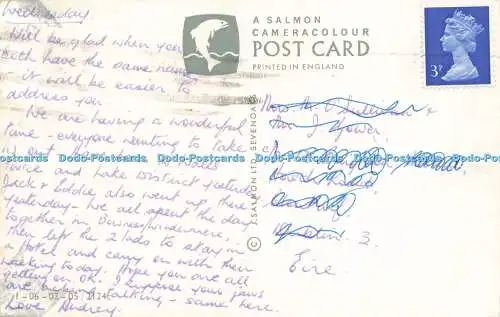 Wednesday.
Will be glad when you
both have the same name
- it will be easier to
address you.
We are having a wonderful
time - everyone wanting to take
us out.
twice and Lake District yesterday
Jack & Eddie also went up there
yesterday - we all spent the day
together in Bowness/Windermere,
then left the 2 lads to stay in
a Hotel and carry on with their
walking today. Hope you are all
getting on OK. I suppose your jaws
are aching talking - same here.
Love Audrey.
1-06-02-05 1124E
A SALMON
CAMERACOLOUR
POST CARD
PRINTED IN ENGLAND
© J. SALMON LTD., SEVENOAKS
3P
&
Mr J Power
3.
Eire.
Dodo-Postcards Dodo-Postcards Dodo-Postcards Dodo-Postcards Dodo-Postcards